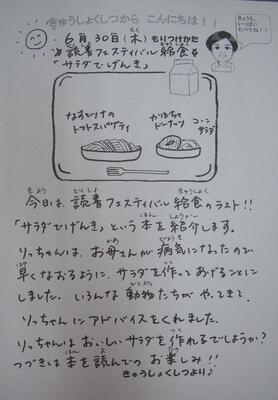 きゅうしょくしつから こんにちは！！
きょうも、いっぱいたべてね！！
6月30日(木)もりつけかた
読書フェスティバル給食
「サラダでげんき」
なすとツナの
トマトスパゲティ
かぼちゃ
ドーナッツ
コーン
サラダ
今日は、読書フェスティバル給食のラスト！！
「サラダでげんき」という本を紹介します。
りっちゃんは、お母さんが病気になったので
早くなおるように、サラダを作ってあげることに
しました。いろんな動物たちがやってきて、
りっちゃんにアドバイスをくれました。
りっちゃんはおいしいサラダを作れるでしょうか？
つづきは本を読んでのお楽しみ！！
きゅうしょくしつより♪